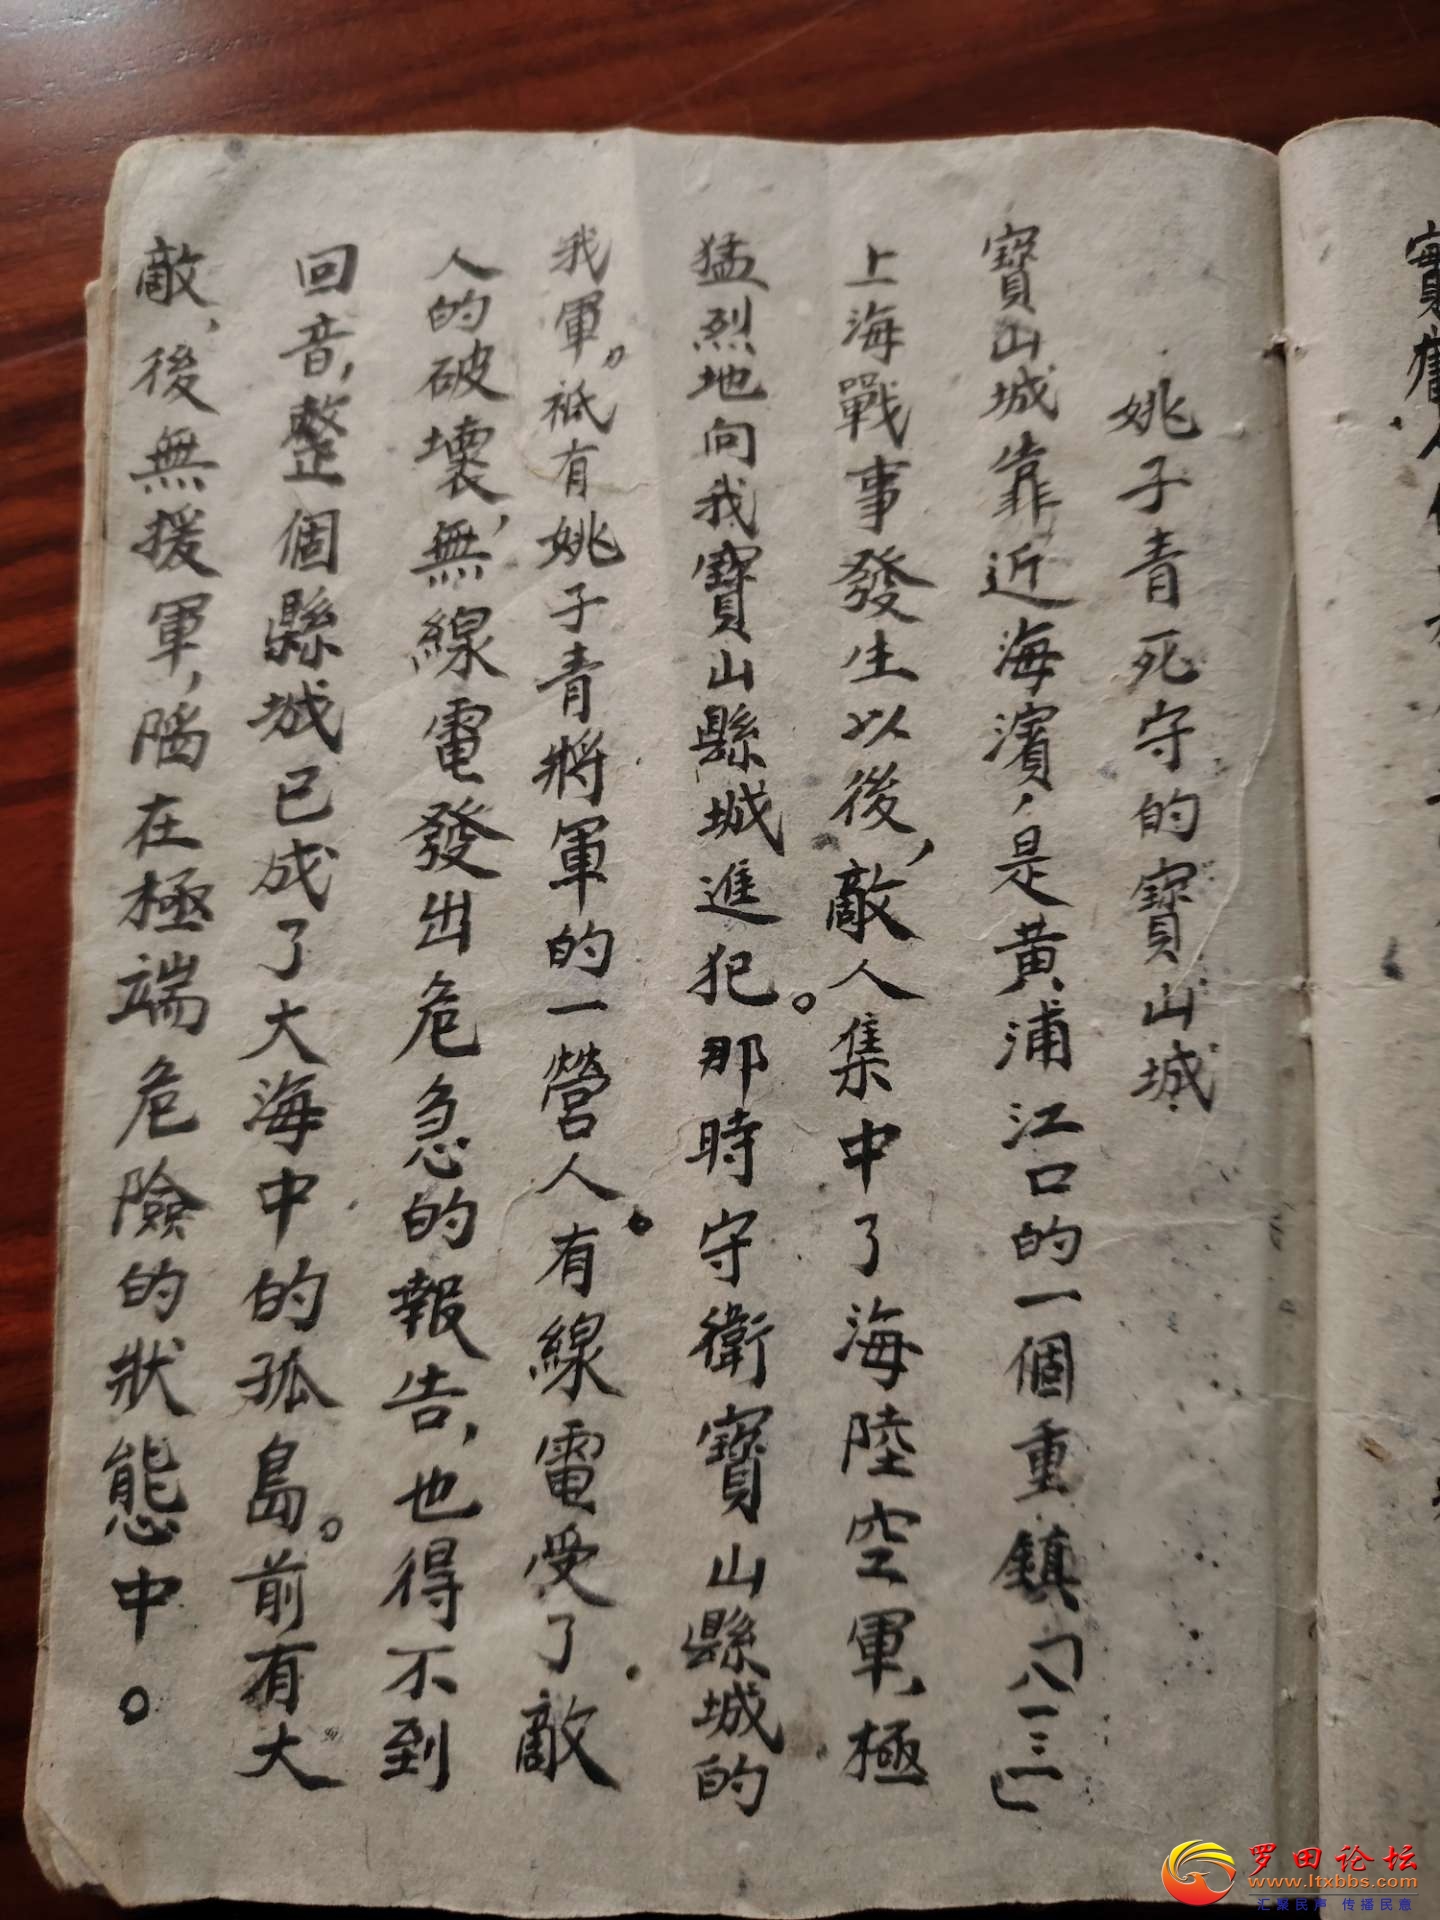 姚子青死守的寶山城
寶山城靠近海濱，是黃浦江口的一個重鎮「八一三」
上海戰事發生以後，敵人集中了海陸空軍，極
猛烈地向我寶山縣城進犯。那時守衛寶山縣城的
我軍。祗有姚子青將軍的一營人。有線電受了敵
人的破壞，無線電發出危急的報告，也得不到
回音，整個縣城已成了大海中的孤島。前有大
敵，後無援軍，陷在極端危險的狀態中。
罗田论坛
www.ltxbbs.com
汇聚民声 传播民意